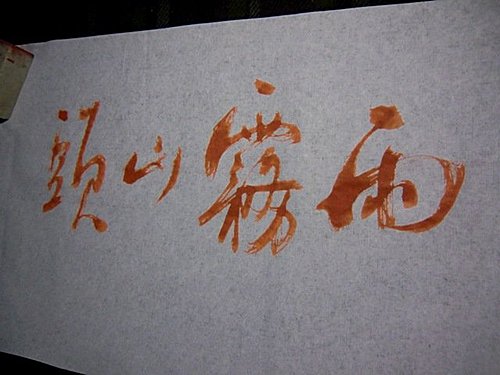 雨霧山頭